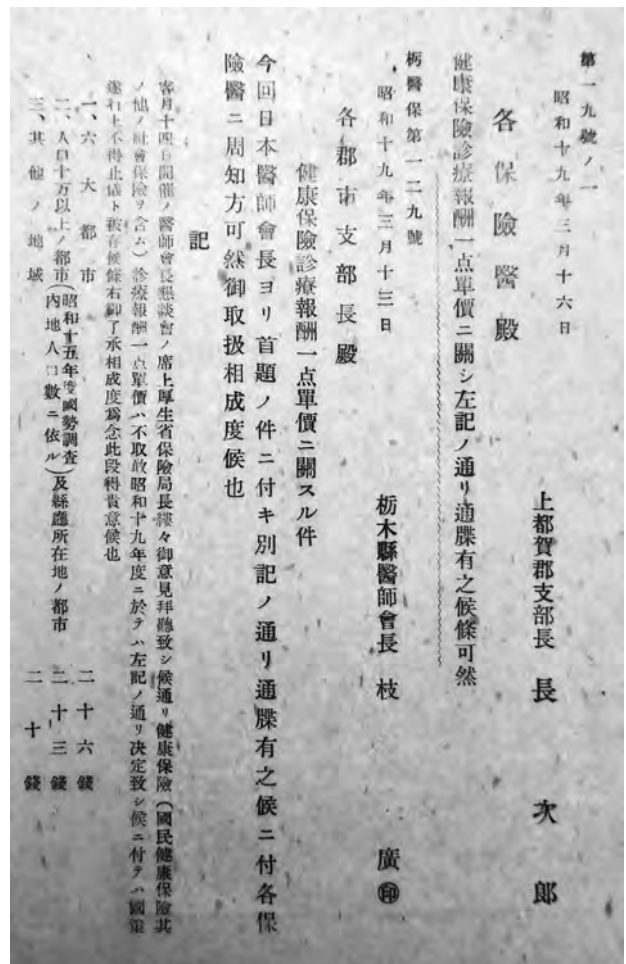 第一九號ノ一
昭和十九年三月十六日
上都賀郡支部長 長 次郎
各保險醫殿
健康保險診療報酬一点單價ニ關シ左記ノ通リ通牒有之候條可然
栃醫保第一二九號
昭和十九年三月十三日
栃木縣醫師會長 枝 廣㊞
各郡市支部長殿
健康保險診療報酬一点單價ニ關スル件
今回日本醫師會長ヨリ首題ノ件ニ付キ別記ノ通リ通牒有之候ニ付各保
險醫ニ周知方可然御取扱相成度候也
記
客月十四日開催ノ醫師會長懇談會ノ席上厚生省保險局長縷々御意見拜聽致シ候通リ健康保險(國民健康保險其
ノ他ノ社會保險ヲ含ム)診療報酬一点單價ハ不取敢昭和十九年度ニ於テハ左記ノ通リ決定致シ候ニ付テハ國策
遂行上不得止儀ト被存候條右御了承相成度爲念此段得貴意候也
一、六大都市 二十六錢
二、人口十万以上ノ都市(昭和十五年度國勢調査内地人口數ニ依ル)及縣廳所在地ノ都市 二十三錢
三、其他ノ地域 二十錢